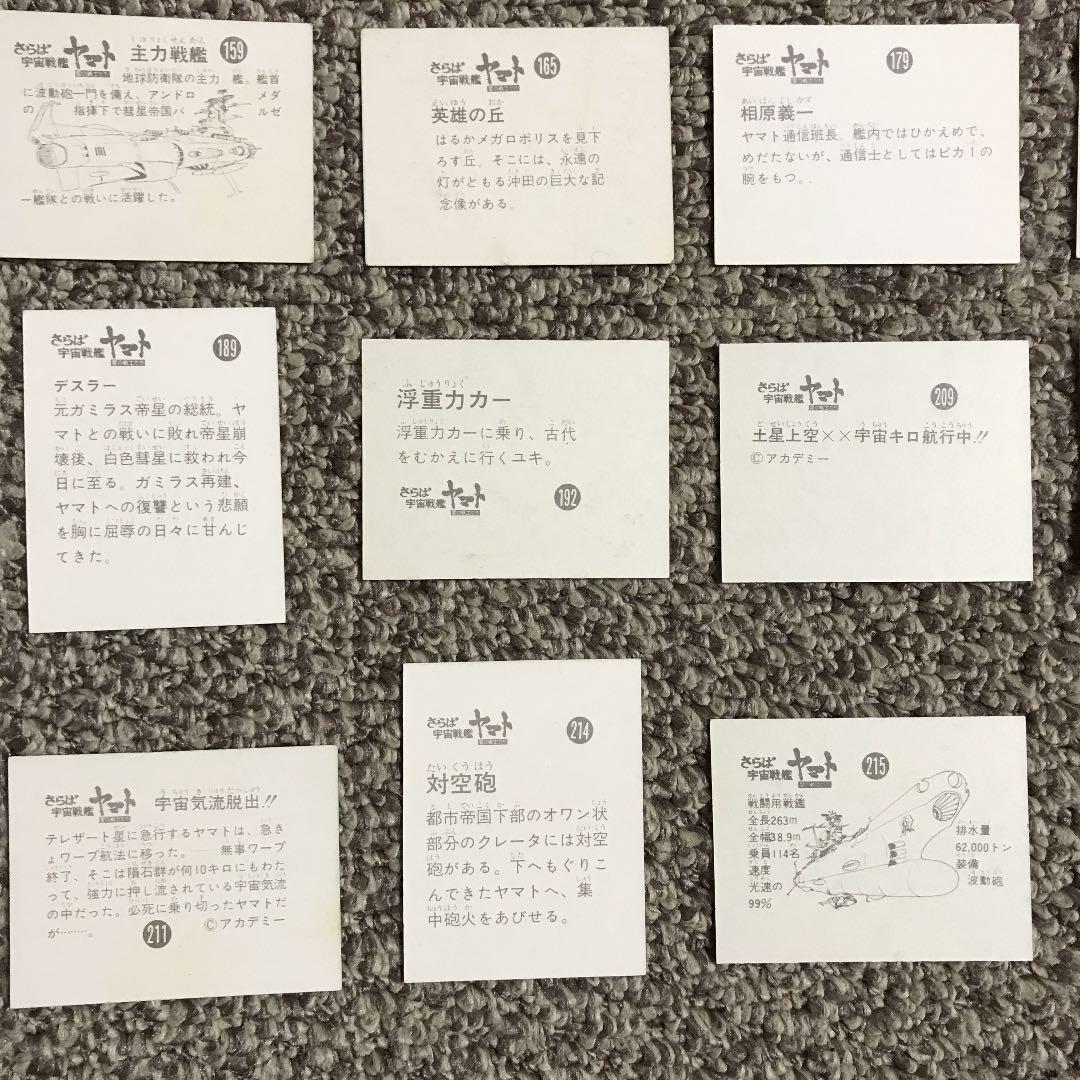 さらば
宇宙戦艦
ヤマト
主力戦艦
159
地球防衛隊の主力 艦。艦首
に波動砲一門を備え、アンドロ メダ
の 指揮下で彗星帝国バ ルゼ
一艦隊との戦いに活躍した。
さらば
宇宙戦艦
ヤマト
165
英雄の丘
はるかメガロポリスを見下
ろす丘。そこには、永遠の
灯がともる沖田の巨大な記
念像がある。
さらば
宇宙戦艦
ヤマト
179
相原義一
ヤマト通信班長。艦内ではひかえめで、
めだたないが、通信士としてはピカ1の
腕をもつ。
さらば
宇宙戦艦
ヤマト
189
デスラー
元ガミラス帝星の総統。ヤ
マトとの戦いに敗れ帝星崩
壊後、白色彗星に救われ今
日に至る。ガミラス再建、
ヤマトへの復讐という悲願
を胸に屈辱の日々に甘んじ
てきた。
ふじゅうりょく
浮重力カー
浮重力カーに乗り、古代
をむかえに行くユキ。
さらば
宇宙戦艦
ヤマト
192
さらば
宇宙戦艦
ヤマト
209
土星上空××宇宙キロ航行中!!
©アカデミー
さらば
宇宙戦艦
ヤマト
宇宙気流脱出!!
テレザート星に急行するヤマトは、急き
ょワープ航法に移った。――無事ワープ
終了、そこは隕石群が何10キロにもわた
って、強力に押し流されている宇宙気流
の中だった。必死に乗り切ったヤマトだ
が………。
211
©アカデミー
さらば
宇宙戦艦
ヤマト
214
たいくうほう
対空砲
都市帝国下部のオワン状
部分のクレータには対空
砲がある。下へもぐりこ
んできたヤマトへ、集
中砲火をあびせる。
さらば
宇宙戦艦
ヤマト
215
戦闘用戦艦
全長263m
全幅38.9m
乗員114名
速度
光速の
99%
排水量
62,000トン
装備
波動砲